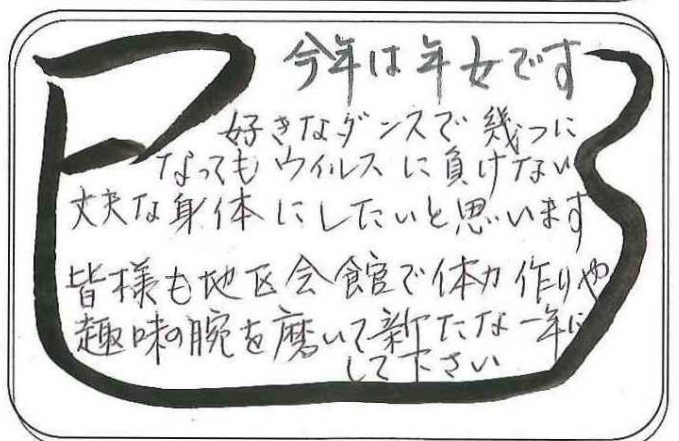 巳
今年は年女です
好きなダンスで幾つに
なってもウィルスに負けない
丈夫な身体にしたいと思います
皆様も地区会館で体力作りや
趣味の腕を磨いて新たな一年に
して下さい